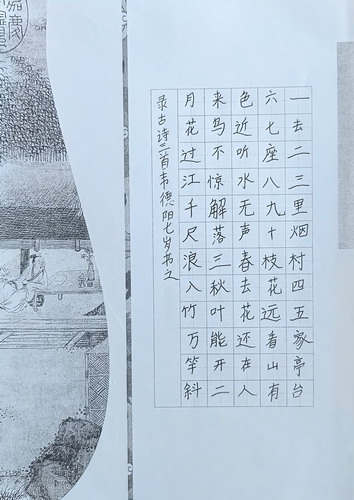 一去二三里烟村四五家亭台
六七座八九十枝花远看山有
色近听水无声春去花还在人
来鸟不惊解落三秋叶能开二
月花过江千尺浪入竹万竿斜
录古诗三首韦德阳七岁书之